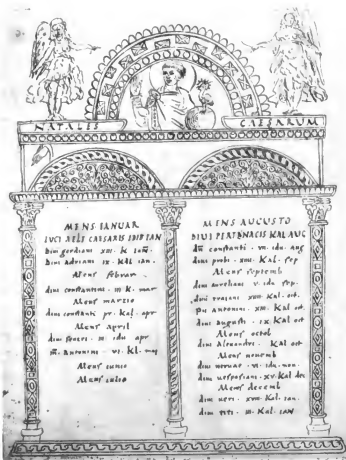 NATALES CAESARUM
MENS IANUAR
LUCI AELI CAESARIS IDIB IAN
Divi gordiani xiii · k
Divi Adriani ix · kal ian
Mens februar
divi constantini · iii k · mar
Mens martio
divi constanti pr · kal · apr
Mens april
divi severi · iii idu apr
m · antonini · vi · kl · mai
Mens iunio
Mens iulio
MENS AUGUSTO
DIVI PERTENACIS KAL AUG
dn constanti · vii · idu · aug
divi probi · xiiii · kal · sep
Mens septemb
divi aureliani v · idu sep ·
divi traiani xiiii · kal · oct ·
pii antonini · xiii · kal oct
divi augusti · ix kal oct
Mens octob
divi Alexandri · kal oct
Mens novemb
divi nervae · vi · idu · non ·
divi vespasiani · xv · kal dec
Mens decemb
divi veri · xviii · kal · ian ·
divi titi · iii · kal · ian